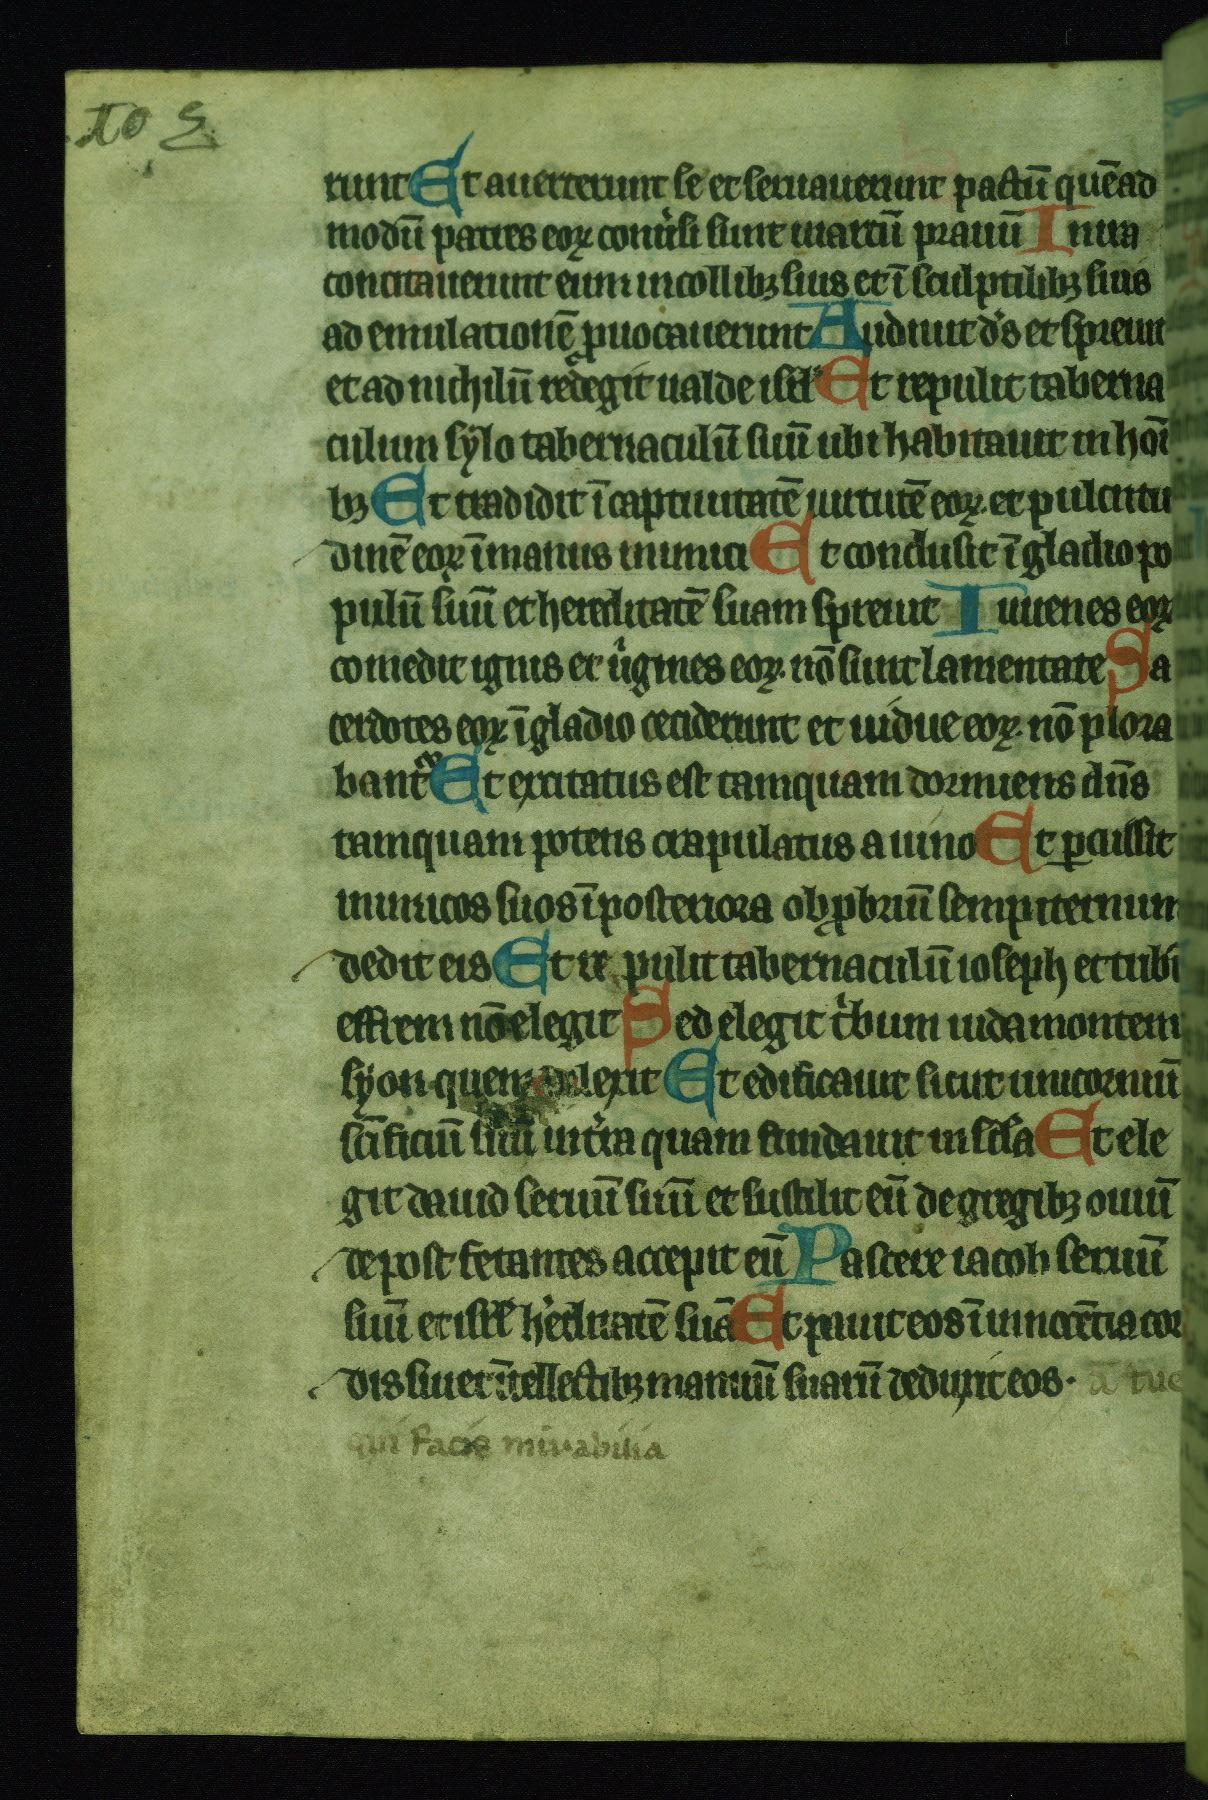 runt Et auerterunt se et seruauerunt pactū quēad
modū patres eoꝝ conu̓si sunt in arcū prauū In ira
concitauerunt eum in collibꝫ suis et ī sculptilibꝫ suis
ad emulationē ꝓuocauerunt Audiuit d̄s et spreuit
et ad nichilū redegit ualde isr̄l Et repulit taberna
culum sẏlo tabernaculū suū ubi habitauit in hoī
bꝫ Et tradidit ī captiuitatē uirtutē eoꝝ et pulcritu
dinē eoꝝ ī manus inimici Et conclusit ī gladio po
pulū suū et hereditatē suam spreuit Iuuenes eoꝝ
comedit ignis et u̓gines eoꝝ nō sunt lamentate Sa
cerdotes eoꝝ ī gladio ceciderunt et uidue eoꝝ nō plora
bant᷑ Et excitatus est tamquam dormiens dn̄s
tamquam potens crapulatus a uino Et ꝑcussit
inimicos suos ī posteriora obꝓbriū sempiternum
dedit eis Et re pulit tabernaculū ioseph et tribū
effrem nō elegit Sed elegit tⁱbum iuda montem
sẏon quem dilexit Et edificauit sicut unicorniū
sc̄ificiū suū in tr̄a quam fundauit in sc̄la Et ele
git dauid seruū suū et sustulit eū de gregibꝫ ouiū
de post fetantes accepit eū Pascere iacob seruū
suū et isr̄l he̓ditatē suā Et pauit eos ī innocētia cor
dis sui et ītellectibꝫ manuū suarū deduxit eos.
qui facis mirabilia